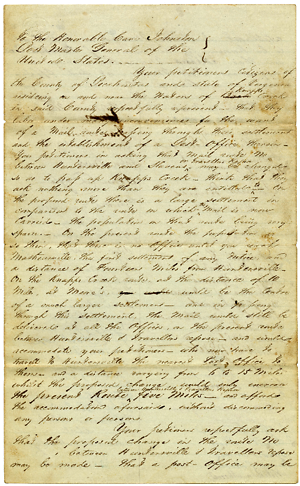 To the Honorable Cave Johnston
Post Master General of the
United States.
Your petitioners citizens of
the County of and state of
residing on and near the waters of Knapps
in said County respectfully represent that they
labor under for the want
of a Mail route passing through their settlement
and the establishment of a Post Office therein
Your petitioners in asking that Mail route No
between Huntersville and Travellers Repose
so as to pass up Knapps Creek think that they
ask nothing more than they are entitled to
the proposed route there is a large settlement in
comparison to the route on which Mail is now
Carried the population on that route being very
sparse On the present route the population
so thin that there is no Office until you get
the first settlement of any note and
a distance of fourteen Miles from Huntersville
On the Knapps Creek route at the distance of
Mile at would be the center
of a much larger settlement and in passing
through this settlement, the Mail would still be
delivered at all the Offices on the present route
between Huntersville & Travellers repose and would
accommodate your petitioners who now have to
travel to Huntersville the nearest Post Office to
them and a distance varying from 6 to 15 Miles
whilst the proposed change would only increase
the present Route five Miles and affords
the accommodation aforesaid, without discommoding
any person or persons
Your petitioners respectfully ask
that the proposed change in the route No
between Huntersville & Travellers repose
may be made that a post-Office may be